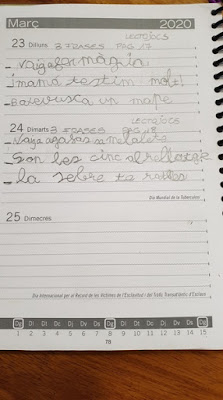 Març 2020
LECTOJOCS
23 Dilluns 3 FRASES PÀG 17
- Vaig a fer màgia
- mama t'estim molt!
- Batevusca un mape
LECTOJOCS
24 Dimarts 3 FRASES PÀG
- Son les cinc al rellatge
- la sebre te ralles
Dia Mundial de la Tuberculosi
25 Dimecres
Dia Internacional per al Record de les Víctimes de l'Esclavitud i del Tràfic Transatlàntic d'Esclaus
Dg Dl Dt Dc Dj Dv Ds Dg Dl Dt Dc Dj Dv Ds Dg
1 2 3 4 5 6 7 8 9 10 11 12 13 14 15